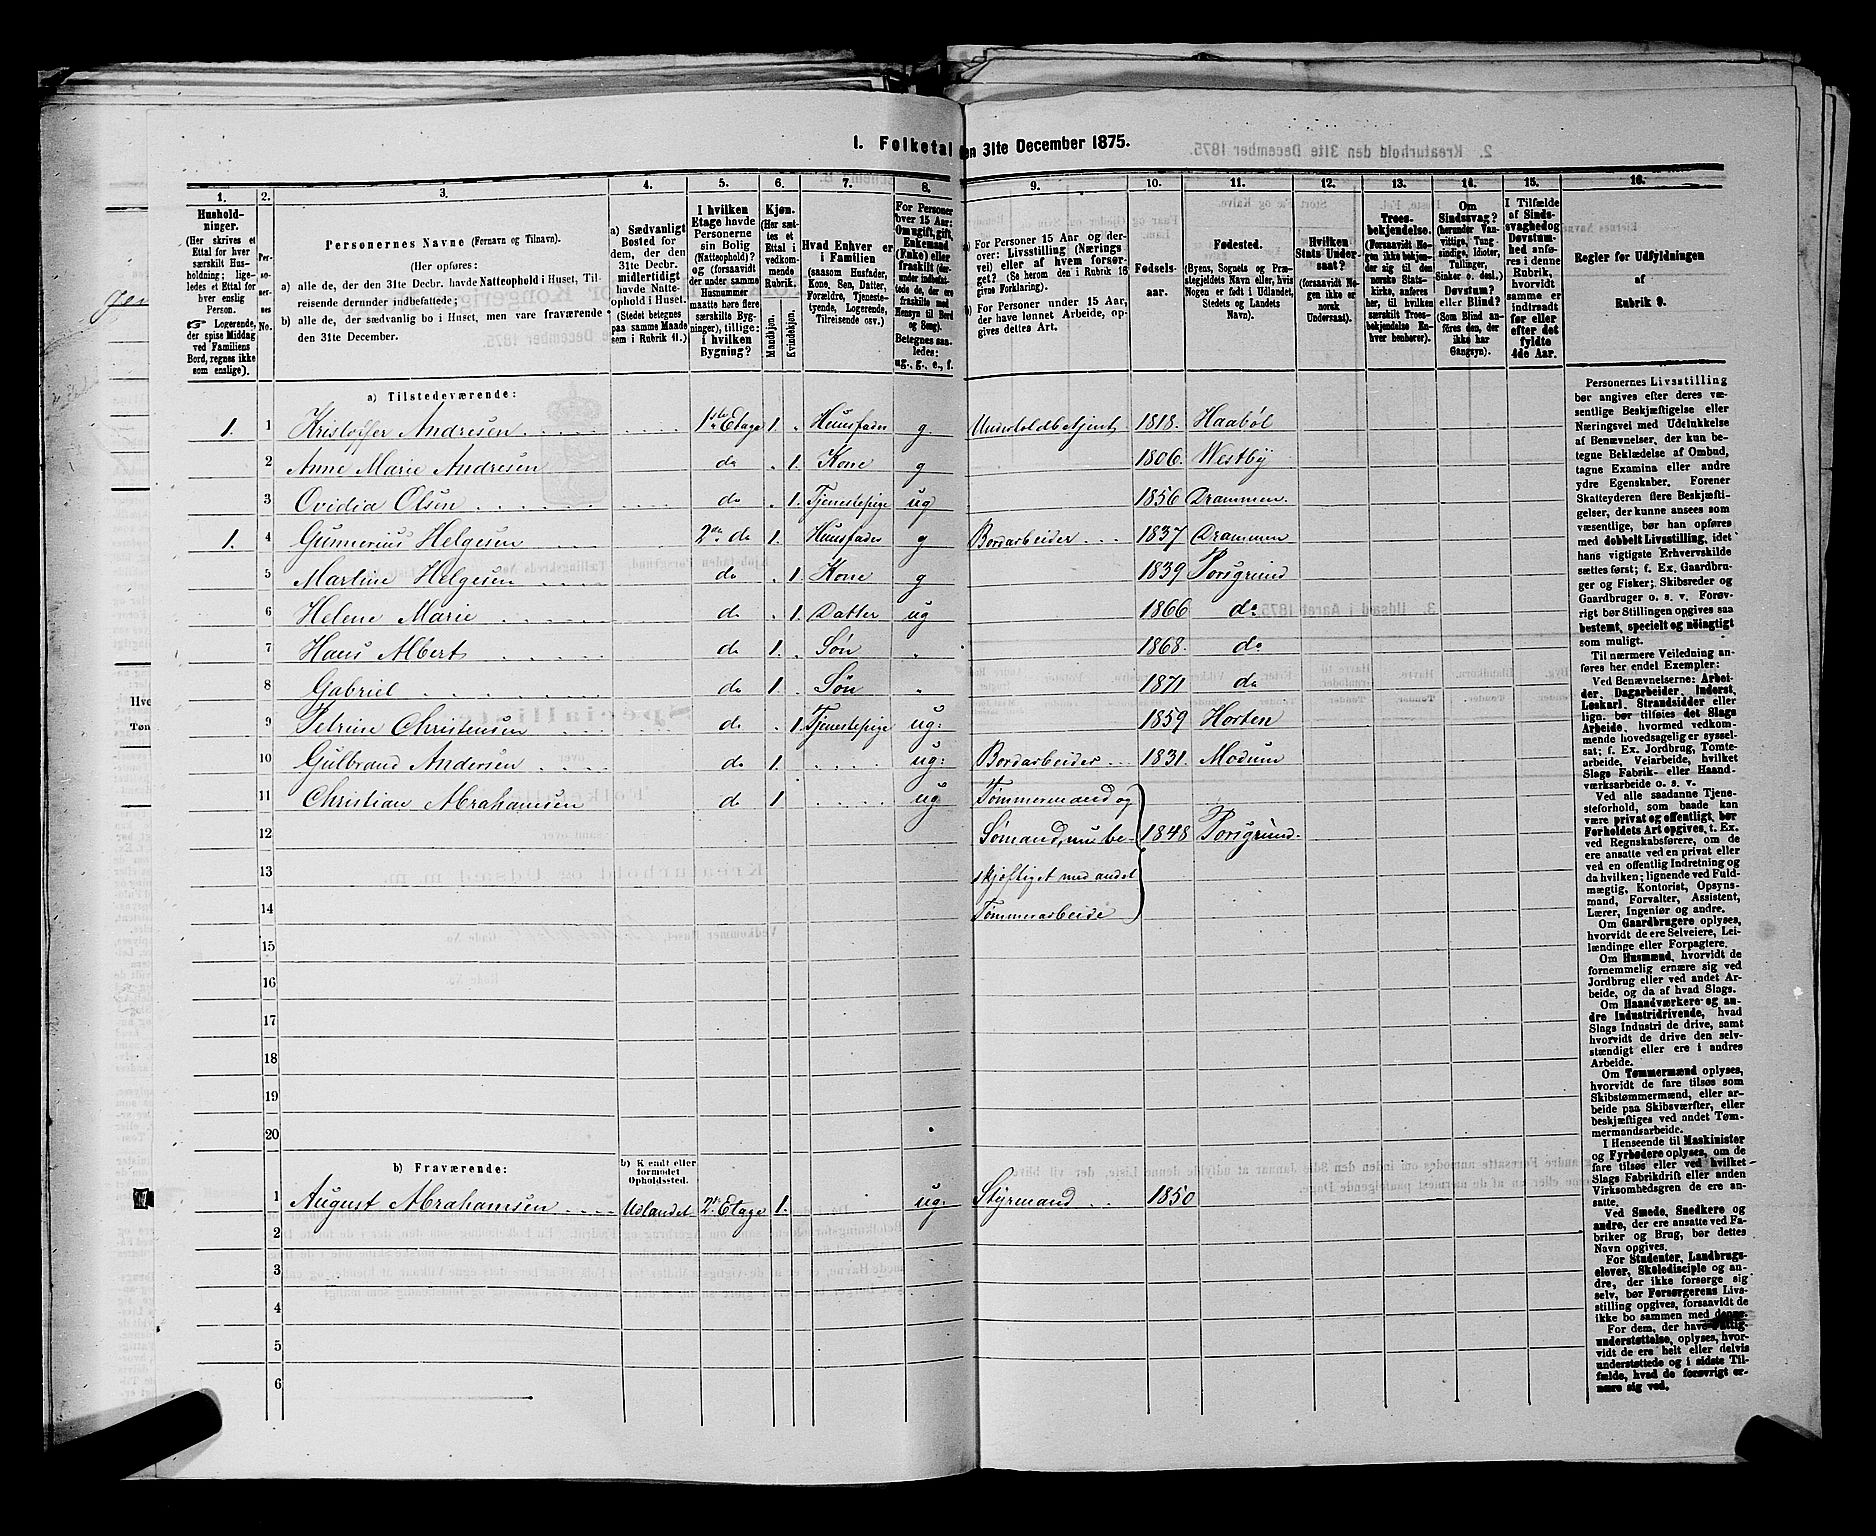 1. Folketal den 31te December 1875.
1. 2. 3. 4. 5. 6. 7. 8. 9. 10. 11. 12. 13. 14. 15. 16.
Hushold-
ninger.
(Her skrives et
Ettal for hver
særskilt Hus-
holdning; lige-
ledes et Ettal for
hver enslig
Person.
☞ Logerende,
der spise Middag
ved Familiens
Bord, regnes ikke
som enslige).
Per-
so-
ner-
nes
No.
Personernes Navne (Fornavn og Tilnavn).
(Her opføres:
a) alle de, der den 31te Decbr. havde Natteophold i Huset, Til-
reisende derunder indbefattede;
b) alle de, der sædvanlig bo i Huset, men vare fraværende
den 31te December.
a) Sædvanligt
Bosted for
dem, der den
31te Decbr.
midlertidigt
havde Natte-
ophold i Huset.
(Stedet betegnes
paa samme Maade
som i Rubrik 11.)
I hvilken
Etage havde
Personerne
sin Bolig
(Natteophold)?
og (forsaavidt
der under samme
Husnummer
maatte høre flere
særskilte Byg-
ninger), tillige:
i hvilken
Bygning?
Kjøn.
(Her sæt-
tes et
Ettal i
vedkom-
mende
Rubrik.
Mandkjøn.
Kvindekjøn.
Hvad Enhver er
i Familien
(saasom Husfader,
Kone, Søn, Datter,
Forældre, Tjeneste-
tyende, Logerende,
Tilreisende osv.)
For Personer
over 15 Aar:
Om ugift, gift,
Enkemand
(Enke) eller
fraskilt (der-
under indbefat-
tede de, der ere
fraskilte med
Hensyn til Bord
og Seng).
Betegnes saa-
ledes:
ug., g., e., f.
a) For Personer 15 Aar og der-
over: Livsstilling (Nærings-
vei) eller af hvem forsør-
get? (Se herom den i Rubrik 16
givne Forklaring).
b) For Personer under 15 Aar,
der have lønnet Arbeide, op-
gives dettes Art.
Fødsels-
aar.
Fødested.
(Byens, Sognets og Præ-
stegjeldets Navn eller, hvis
Nogen er født i Udlandet,
Stedets og Landets
Navn).
Hvilken
Stats Under-
saat?
(forsaavidt No-
gen ikke er
norsk
Undersaat).
Troes-
bekjendelse.
(Forsaavidt No-
gen ikke bekjen-
der sig til den
norske Stats-
kirke, anføres
her, til hvilken
særskilt Troes-
bekjendelse En-
hver henhører).
Om
Sindssvag?
(herunder Van-
vittige, Tung-
sindige, Idioter,
Tullinger,
Sinker o. desl.)
Døvstum?
eller Blind?
(Som Blind an-
føres den, der
ikke har
Gangsyn).
I Tilfælde
af Sinds-
svaghed og
Døvstum-
hed anfø-
res i denne
Rubrik,
hvorvidt
samme er
indtraadt
før eller
efter det
fyldte
4de Aar.
Regler for Udfyldningen
af
Rubrik 9.
a) Tilstedeværende:
1. 1 Kristoffer Andresen 1ste Etage 1. Huusfader g. 1818. Haabøl
2 Anne Marie Andresen do 1. Kone g 1806. Westby
3 Ovidia Olsen do 1. Tjenestepige ug 1856 Drammen
1. 4 Gunnerius Helgesen 2den do 1. Huusfader g Bordarbeider 1837 Drammen
5 Martine Helgesen do 1. Kone g 1839 Porsgrund
6 Helene Marie do 1. Datter ug 1866 do
7 Hans Albert do 1. Søn 1868. do
8 Gabriel do 1. Søn 1871 do
9 Petrine Christensen do 1. Tjenestepige ug: 1859 Horten
10 Gulbrand Andersen do 1. ug: Bordarbeider 1831 Modum
11 Christian Abrahamsen do 1. ug Tømmermand og
12 Sømand, nu be- 1848 Porsgrund
13 skjæftiget med andet
14 Tømmerarbeide
15
16
17
18
19
20
b) Fraværende:
b) Kjendt eller
formodet
Opholdssted.
1 August Abrahamsen Udlandet 2. Etage 1. ug. Styrmand 1850
2
3
4
5
6
Personernes Livsstilling
bør angives efter deres væ-
sentlige Beskjæftigelse eller
Næringsvei med Udelukkelse
af Benævnelser, der kun be-
tegne Beklædelse af Ombud,
tagne Examina eller andre
ydre Egenskaber. Forener
Skatteyderen flere Beskjæfti-
gelser, der kunne ansees som
væsentlige, bør han opføres
med dobbelt Livsstilling, idet
hans vigtigste Erhvervskilde
sættes først; f. Ex. Gaardbru-
ger og Fisker; Skibsreder og
Gaardbruger o. s. v. Forøv-
rigt bør Stillingen opgives saa
bestemt, specielt og nöiagtigt
som muligt.
Til nærmere Veiledning an-
føres her endel Exempler:
Ved Benævnelserne: Arbei-
der, Dagarbeider, Inderst,
Løskarl, Strandsidder eller
lign. bør tilføies det Slags
Arbeide, hvormed vedkom-
mende hovedsagelig er syssel-
sat; f. Ex. Jordbrug, Tomte-
arbeide, Veiarbeide, hvilket
Slags Fabrik- eller Haand-
værksarbeide o. s. v.
Ved alle saadanne Tjene-
steforhold, som baade kan
være privat og offentligt, bør
Forholdets Art opgives, t. Ex.
ved Regnskabsførere, om de
ere ansatte ved en privat eller
ved en offentlig Indretning og
da hvilken; lignende ved Fuld-
mægtig, Kontorist, Opsyns-
mand, Forvalter, Assistent,
Lærer, Ingeniør og andre.
Om Gaardbrugere oplyses,
hvorvidt de ere Selveiere, Lei-
lændinge eller Forpagtere.
Om Husmænd, hvorvidt de
fornemmelig ernære sig ved
Jordbrug eller ved andet Ar-
beide, og da af hvad Slags.
Om Haandværkere og an-
dre Industridrivende, hvad
Slags Industri de drive, samt
hvorvidt de drive den selv-
stændigt eller ere i andres
Arbeide.
Om Tømmermænd oplyses,
hvorvidt de fare tilsøs som
Skibstømmermænd, eller ar-
beide paa Skibsværfter, eller
beskjæftiges ved andet Tøm-
mermandsarbeide.
I Henseende til Maskinister
og Fyrbødere oplyses, om de
fare tilsøs eller ved hvilket
Slags Fabrikdrift eller anden
Virksomhedsgren de ere an-
satte.
Ved Smede, Snedkere og
andre, der ere ansatte ved Fa-
briker og Brug, bør dettes
Navn opgives.
For Studenter, Landbrugs-
elever, Skoledisciple og an-
dre, der ikke forsørge sig
selv, bør Forsørgerens Livs-
stilling opgives, forsaavidt de
ikke bo sammen med denne.
For dem, der have Fattig-
understøttelse, oplyses, hvor-
vidt de ere helt eller delvis
understøttede og i sidste Til-
fælde, hvad de forøvrigt er-
nære sig ved.